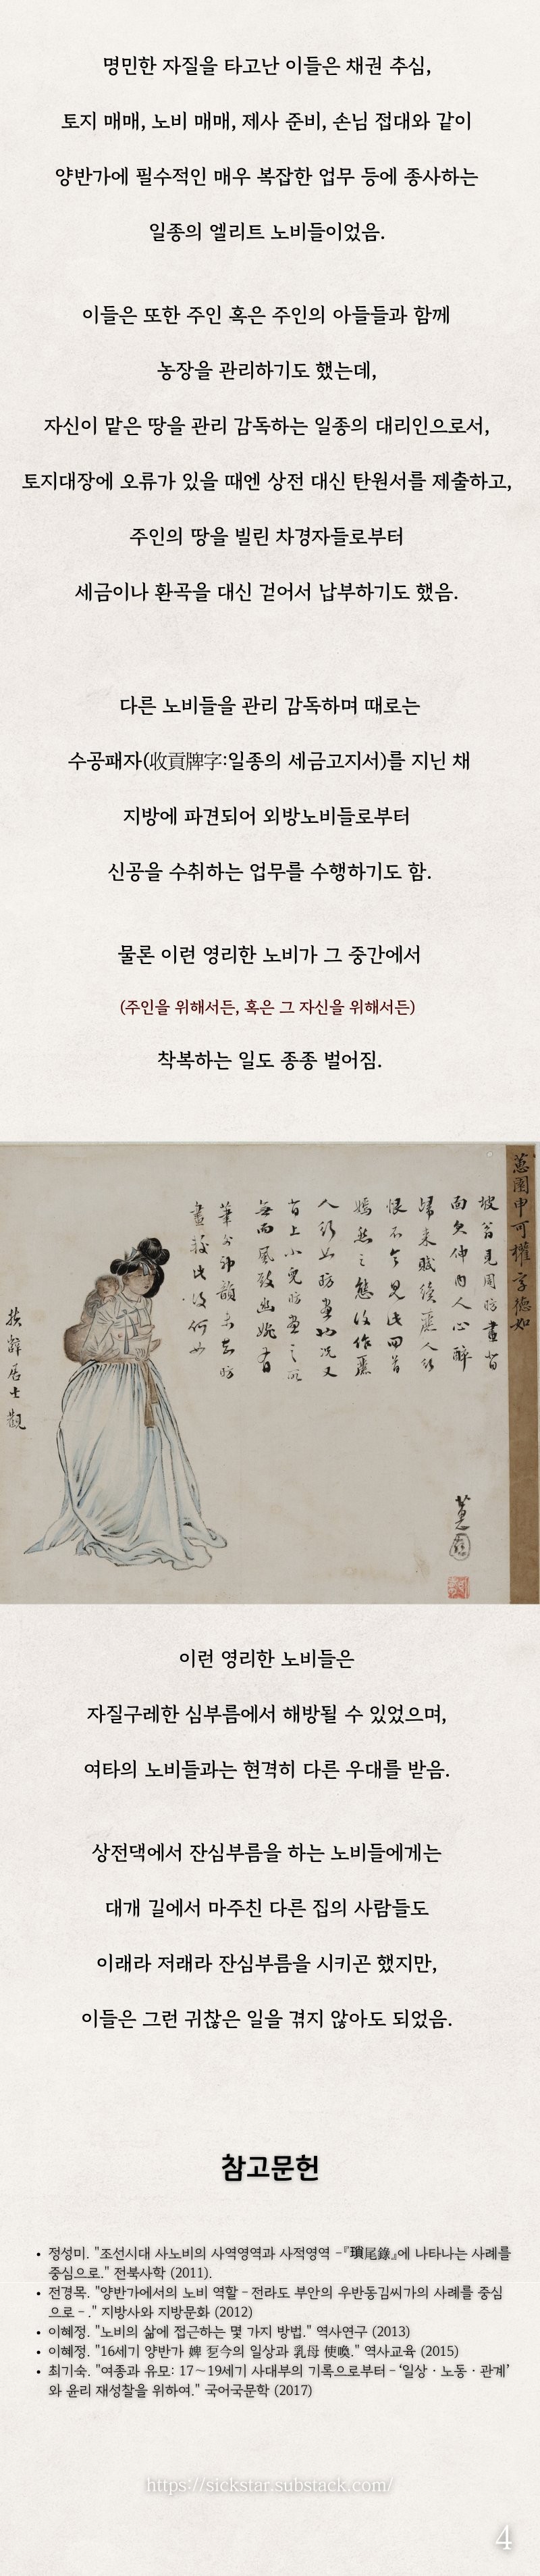 명민한 자질을 타고난 이들은 채권 추심,
토지 매매, 노비 매매, 제사 준비, 손님 접대와 같이
양반가에 필수적인 매우 복잡한 업무 등에 종사하는
일종의 엘리트 노비들이었음.
이들은 또한 주인 혹은 주인의 아들들과 함께
농장을 관리하기도 했는데,
자신이 맡은 땅을 관리 감독하는 일종의 대리인으로서,
토지대장에 오류가 있을 때엔 상전 대신 탄원서를 제출하고,
주인의 땅을 빌린 차경자들로부터
세금이나 환곡을 대신 걷어서 납부하기도 했음.
다른 노비들을 관리 감독하며 때로는
수공패자(收貢牌字:일종의 세금고지서)를 지닌 채
지방에 파견되어 외방노비들로부터
신공을 수취하는 업무를 수행하기도 함.
물론 이런 영리한 노비가 그 중간에서
(주인을 위해서든, 혹은 그 자신을 위해서든)
착복하는 일도 종종 벌어짐.
蕙園申可權字德如
坡翁見周昉畫背
面欠伸內人心醉
歸來賦續麗人行
恨不令見此回首
嫣然之態復作麗
人行
無而風致
畫
蕙園
居士觀
이런 영리한 노비들은
자질구레한 심부름에서 해방될 수 있었으며,
여타의 노비들과는 현격히 다른 우대를 받음.
상전댁에서 잔심부름을 하는 노비들에게는
대개 길에서 마주친 다른 집의 사람들도
이래라 저래라 잔심부름을 시키곤 했지만,
이들은 그런 귀찮은 일을 겪지 않아도 되었음.
참고문헌
• 정성미. "조선시대 사노비의 사역영역과 사적영역 -『瑣尾錄』에 나타나는 사례를
중심으로." 전북사학 (2011).
• 전경목. "양반가에서의 노비 역할 - 전라도 부안의 우반동김씨가의 사례를 중심
으로 - ." 지방사와 지방문화 (2012)
• 이혜정. "노비의 삶에 접근하는 몇 가지 방법." 역사연구 (2013)
• 이혜정. "16세기 양반가 婢 乭今의 일상과 乳母 使喚." 역사교육 (2015)
• 최기숙. "여종과 유모: 17~19세기 사대부의 기록으로부터 - '일상 · 노동 · 관계'
와 윤리 재성찰을 위하여." 국어국문학 (2017)
https://sickstar.substack.com/
4